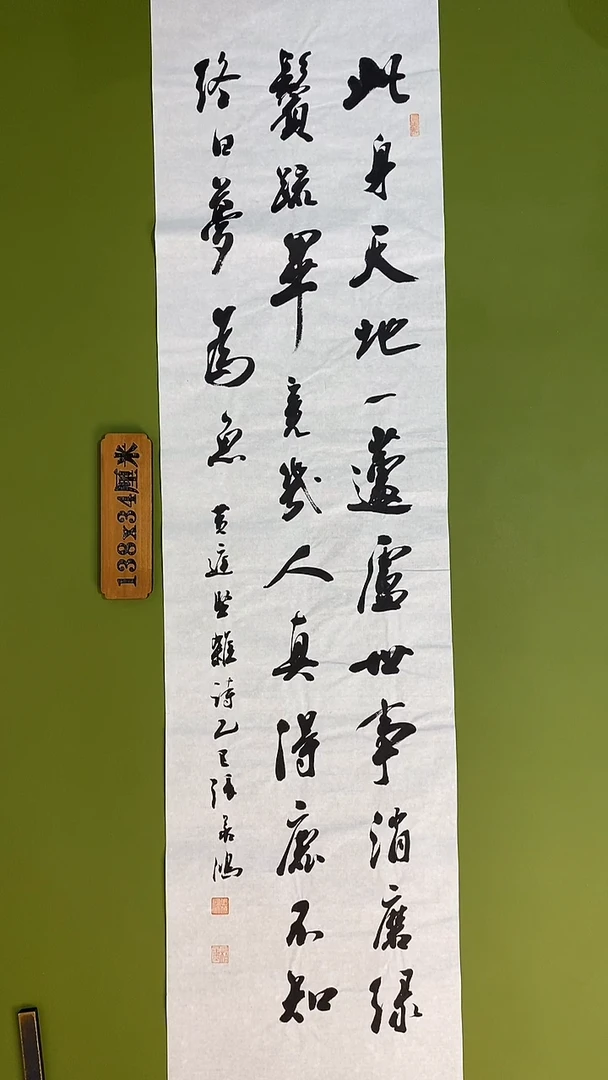 此身天地一蘧廬世事消磨緑
鬢疎畢竟幾人真得鹿不知
終日夢為魚
黄庭堅雜詩乙巳張
138x34厘米